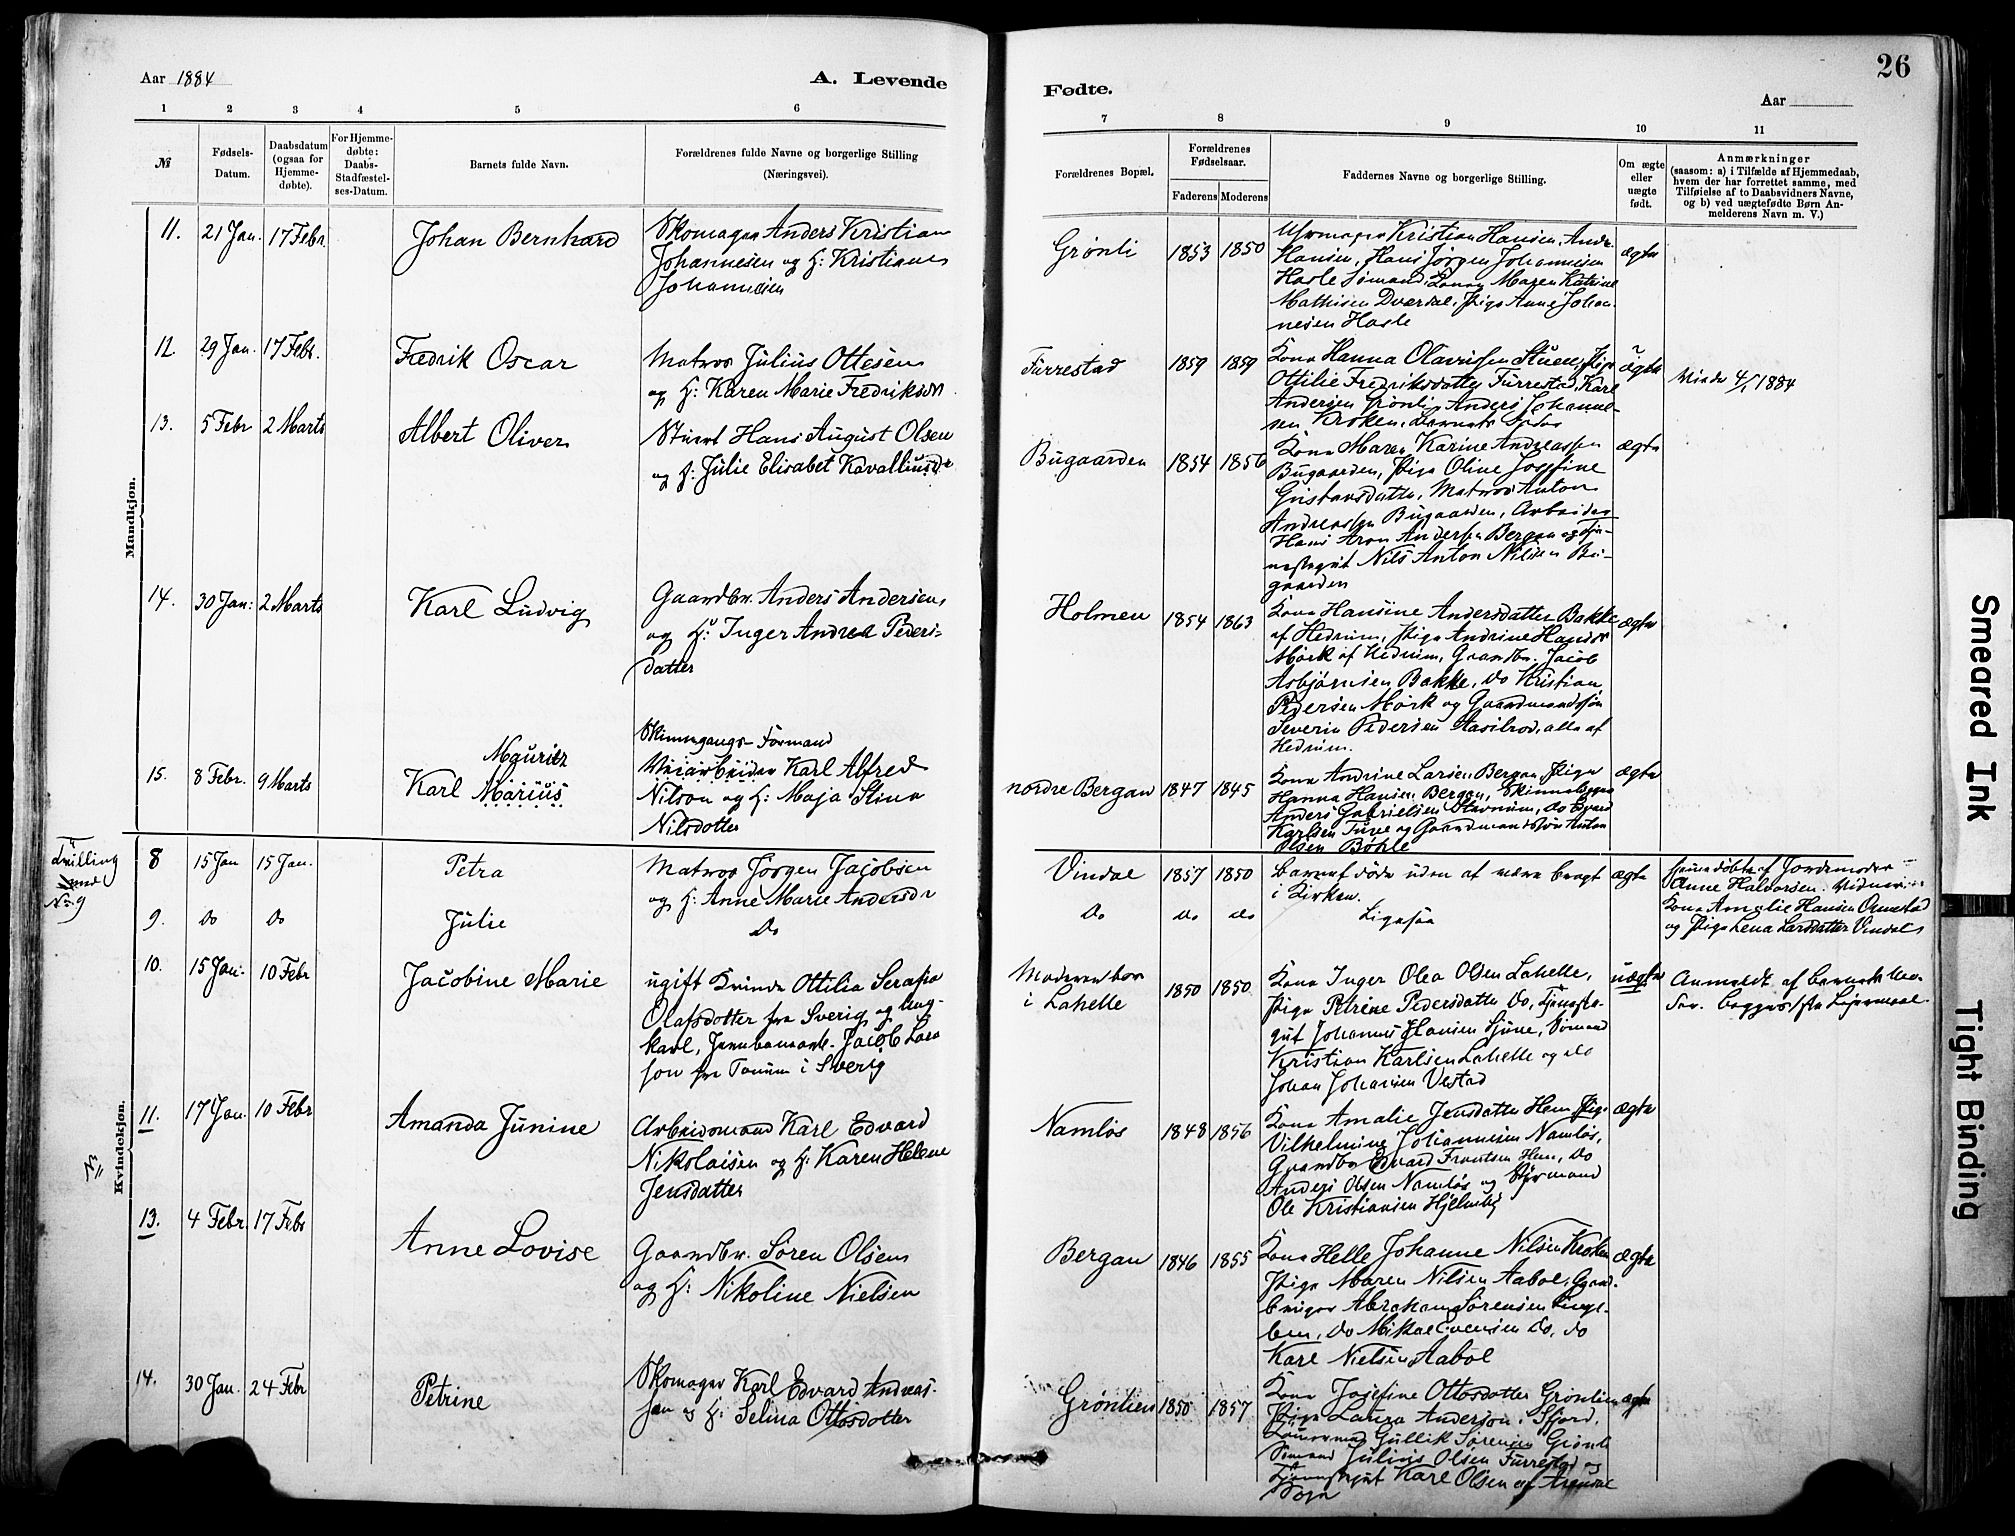 26
Aar 1884
A. Levende
Fødte.
Aar
1 2 3 4 5 6
7 8 9 10 11
№
Fødsels-
Datum.
Daabsdatum
(ogsaa for
Hjemme-
døbte).
For Hjemme-
døbte:
Daabs-
Stadfæstel-
ses-Datum.
Barnets fulde Navn.
Forældrenes fulde Navne og borgerlige Stilling
(Næringsvei).
Forældrenes Bopæl.
Forældrenes
Fødselsaar.
Faderens Moderens
Faddernes Navne og borgerlige Stilling.
Om ægte
eller
uægte
født.
Anmærkninger
(saasom: a) i Tilfælde af Hjemmedaab,
hvem der har forrettet samme, med
Tilføielse af to Daabsvidners Navne,
og b) ved uægtefødte Børn An-
melderens Navn m. V.)
Mandkjøn.
11. 21 Jan. 17 Febr. Johan Bernhard
Skomager Anders Kristian
Johannesen og H: Kristiane
Johannesen
Grønli 1853 1850
Urmager Kristian Hansen, Andr.
Hansen, Hans Jørgen Johannesen
Hasle Sømand, Kona Maren Katrine
Mathisen Dverdal, Pige Anne Johan-
nesen Hasle
ægte
12. 29 Jan. 17 Febr. Fredrik Oscar
Matros Julius Ottesen
og H: Karen Marie Fredriksdr
Furrestad 1859 1859
Kona Hanna Olavesen Stuene, Pige
Ottilie Fredriksdatter Furrestad, Karl
Andersen Grønli, Anders Johanne-
sen Kroken, Barnets Fader
ægte
Viede 4/1 1884
13. 5 Febr 2 Marts Albert Oliver
Stuert Hans August Olsen
og H: Julie Elisabet Kavalliusdr
Bugaarden 1854 1856
Kona Maren Karine Andreassen
Bugaarden, Pige Oline Josefine
Gustavsdatter, Matros Anton
Andreassen Bugaarden, Arbeider
Hans Aron Andersen Bergan og Tje-
nestegut Nils Anton Nilsen Bu-
gaarden
ægte
14. 30 Jan: 2 Marts Karl Ludvig
Gaardbr. Anders Andersen
og H: Inger Andrea Peders-
datter
Holmen 1854 1863
Kona Hansine Andersdatter Bakke
af Hedrum, Pige Andrine Hansdr
Mørk af Hedrum, Gaardbr. Jacob
Asbjørnsen Bakke, do Kristian
Pedersen Mørk og Gaardmandssøn
Severin Pedersen Aasilrod, alle af
Hedrum.
ægte
15. 8 Febr. 9 Marts Karl Marius
Mauritz
Skinnegangs-Formand
Veiarbeider Karl Alfred
Nilson og H: Maja Stina
Nilsdotter
nordre Bergan 1847 1845
Kona Andrine Larsen Bergan, Pige
Hanna Hansen Bergan, Skinnelægger
Anders Gabrielsen Stavnum, do Edvard
Karlsen Tuve og Gaardmandssøn Anton
Olsen Bøhle
ægte
Tvilling
Kvindekjøn.
8 15 Jan 15 Jan. Petra
Matros Jørgen Jacobsen
og H: Anne Marie Andersdr
Vindal 1857 1850
Barnet døde uden at være bragt
i Kirken.
ægte
Hjemmedøbt af Jordemoder
Anne Halvorsen. Vidner:
Kona Amalie Hansen Ormestad
og Pige Lena Larsdatter Vindal
9. Do Do Julie
Do
Do do do
Ligesaa
10. 15 Jan: 10 Febr Jacobine Marie
ugift Kvinde Ottilia Serafia
Olafsdotter fra Sverig og Ung-
karl, Jernbanearb. Jacob Lars
son fra Tanum i Sverig
Moderen bor
i Lahelle
1850 1850
Kona Inger Olea Olsen Lahelle,
Pige Petrine Pedersdatter Do, Tjeneste-
gut Johannes Hansen Sjüne, Sømand
Kristian Karlsen Lahelle og do
Johan Johansen Vestad
uægte
Anmeldt af Barnets Mo-
der. Begges første Leiermaal.
11. 17 Jan. 10 Febr Amanda Junine
Arbeidsmand Karl Edvard
Nikolaisen og H: Karen Helene
Jensdatter
Namløs 1848 1856
Kona Amalie Jensdatter Hem, Pige
Vilhelmine Johannesen Namløs,
Gaardbr Edvard Frantsen Hem, do
Anders Olsen Namløs og Styrmand
Ole Kristiansen Hjelmby
ægte
13. 4 Febr. 17 Febr Anne Lovise
Gaardbr. Søren Olsen
og H: Nikoline Nielsen
Bergan 1846 1855
Kona Helle Johanne Nilsen Kroken
Pige Maren Nilsen Aabol, Gaard-
bruger Abraham Sørensen
do
Karl Nielsen Aabol
ægte
14. 30 Jan. 24 Febr Petrine
Skomager Karl Edvard Andreas-
sen og H: Selina Ottosdotter
Grønlien 1850 1857
Kona Josefine Ottosdotter Grønlien
Pige Laura Anderson i Sfjord,
Gullik Sørensen Grønli
Sømand Julius Olsen Furrestad og
Tjenestegut Karl Olsen af Arendal
Sogn
ægte
Smeared Ink
Tight Binding